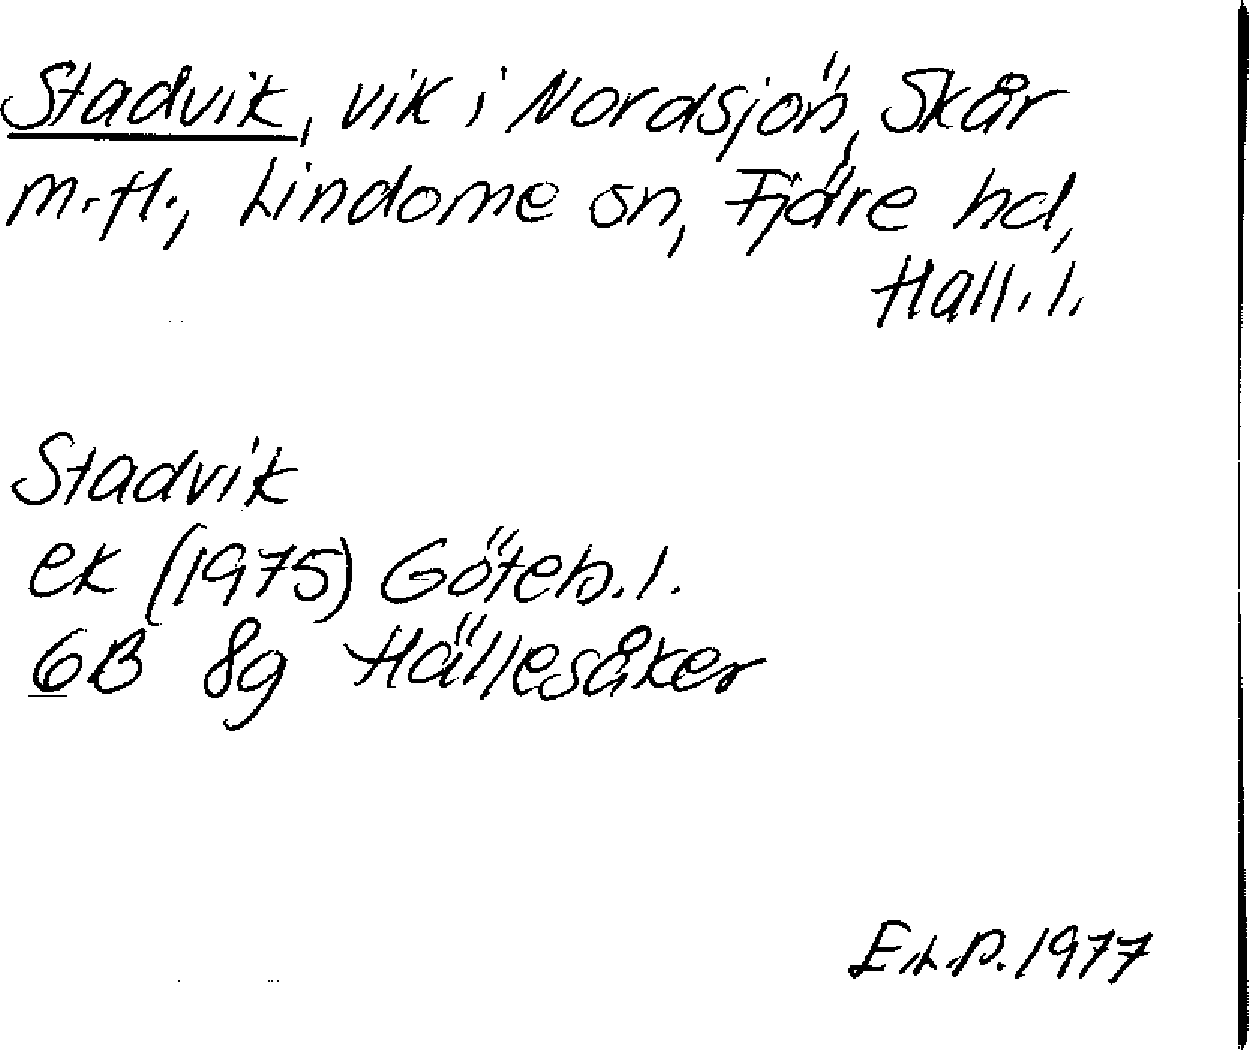 Stadvik, vik i Nordsjön, Skår
m.fl., Lindome sn, Fjäre hd,
Hall.l.
Stadvik
ek (1975) Göteb.l.
6B 8g Hällesåker
E.L.P. 1977